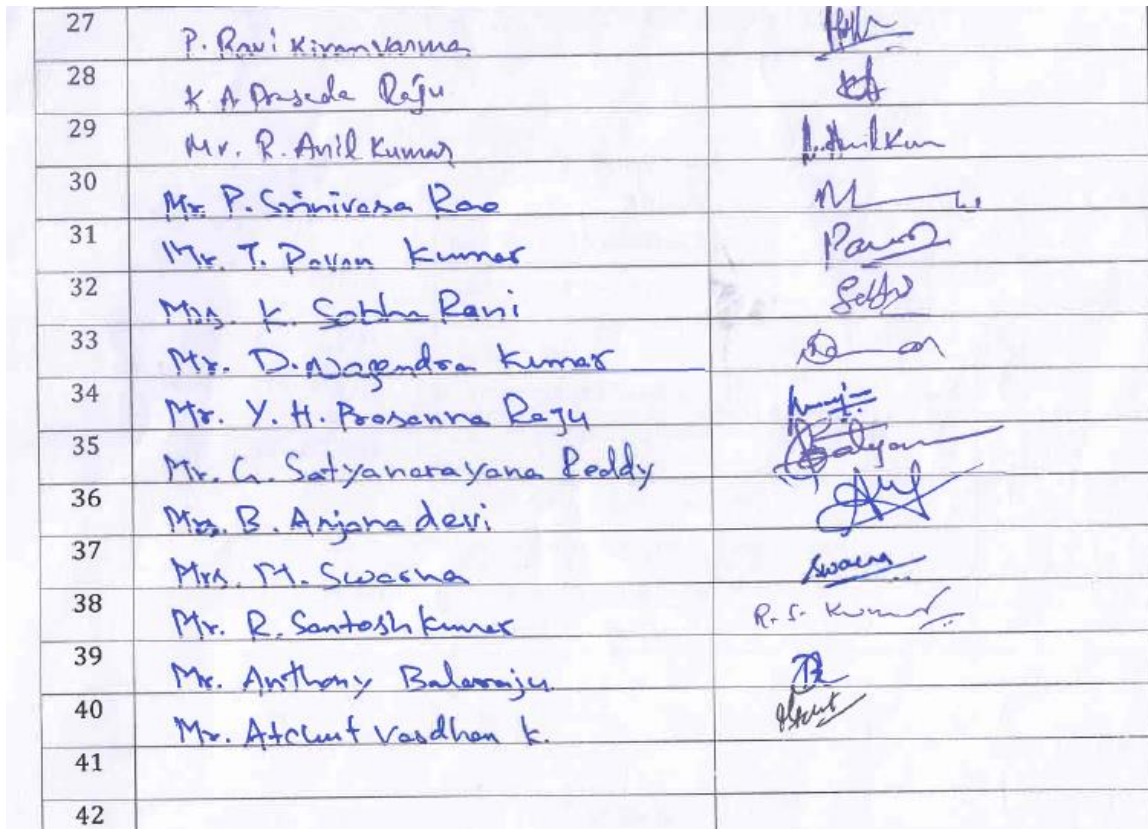 27 P. Ravi Kiran Varma
28 K A Prasada Raju
29 Mr. R. Anil Kumar R. Anil Kum
30 Mr. P. Srinivasa Rao
31 Mr. T. Pavan Kumar Pavan
32 Mrs. K. Sobha Rani
33 Mr. D. Nagendra Kumar
34 Mr. Y. H. Prasanna Raju
35 Mr. G. Satyanarayana Reddy
36 Mrs B. Anjana devi
37 Mrs. M. Swarna Swarna
38 Mr. R. Santosh kumar R. S. Kumar
39 Mr. Anthony Balaraju
40 Mr. Atchut Vardhan k.
41
42